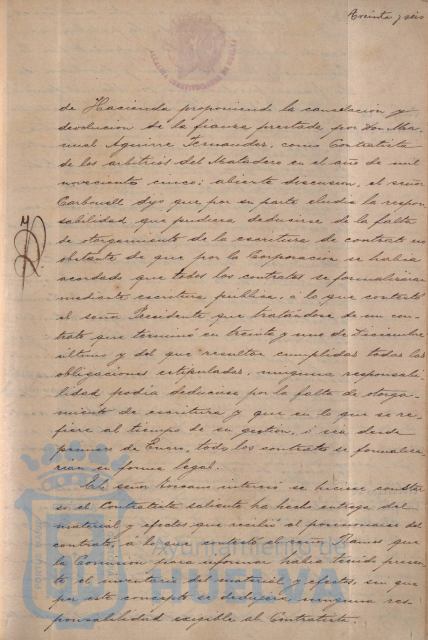 Treinta y seis
ALCALDIA CONSTITUCIONAL DE HUELVA
de Hacienda proponiendo la cancelacion y
devolucion de la fianza prestada, por Don Ma-
nuel Aguirre Fernandez, como Contratista
de los arbitrios del Matadero en el año de mil
novecientos cinco; abierta discusion, el señor
Carbonell dijo que por su parte eludia la respon-
sabilidad que pudiera deducirse de la falta
de otorgamiento de la escritura de contrato no
obstante de que por la Corporacion se habia
acordado que todos los contratos se formalizaran
mediante escritura publica, a lo que contestó
el señor Presidente que tratándose de un con-
trato que terminó en treinta y uno de Diciembre
último y del que resultan cumplidas todas las
obligaciones estipuladas, ninguna responsabi-
lidad podia deducirse por la falta de otorga-
miento de escritura y que en lo que se re-
fiere al tiempo de su gestión, ó sea desde
primero de Enero, todo los contratos se formaliza-
rian en forma legal.
El señor interesó se hiciese constar
si el Contratista saliente ha hecho entrega del
material y efectos que recibió al posesionarse del
contrato, a lo que contestó el señor que
la Comision para informar habia tenido presen-
te el inventario del material y efectos, sin que
por este concepto se dedujera ninguna res-
ponsabilidad exigible al Contratista.
Ayuntamiento de
HUELVA